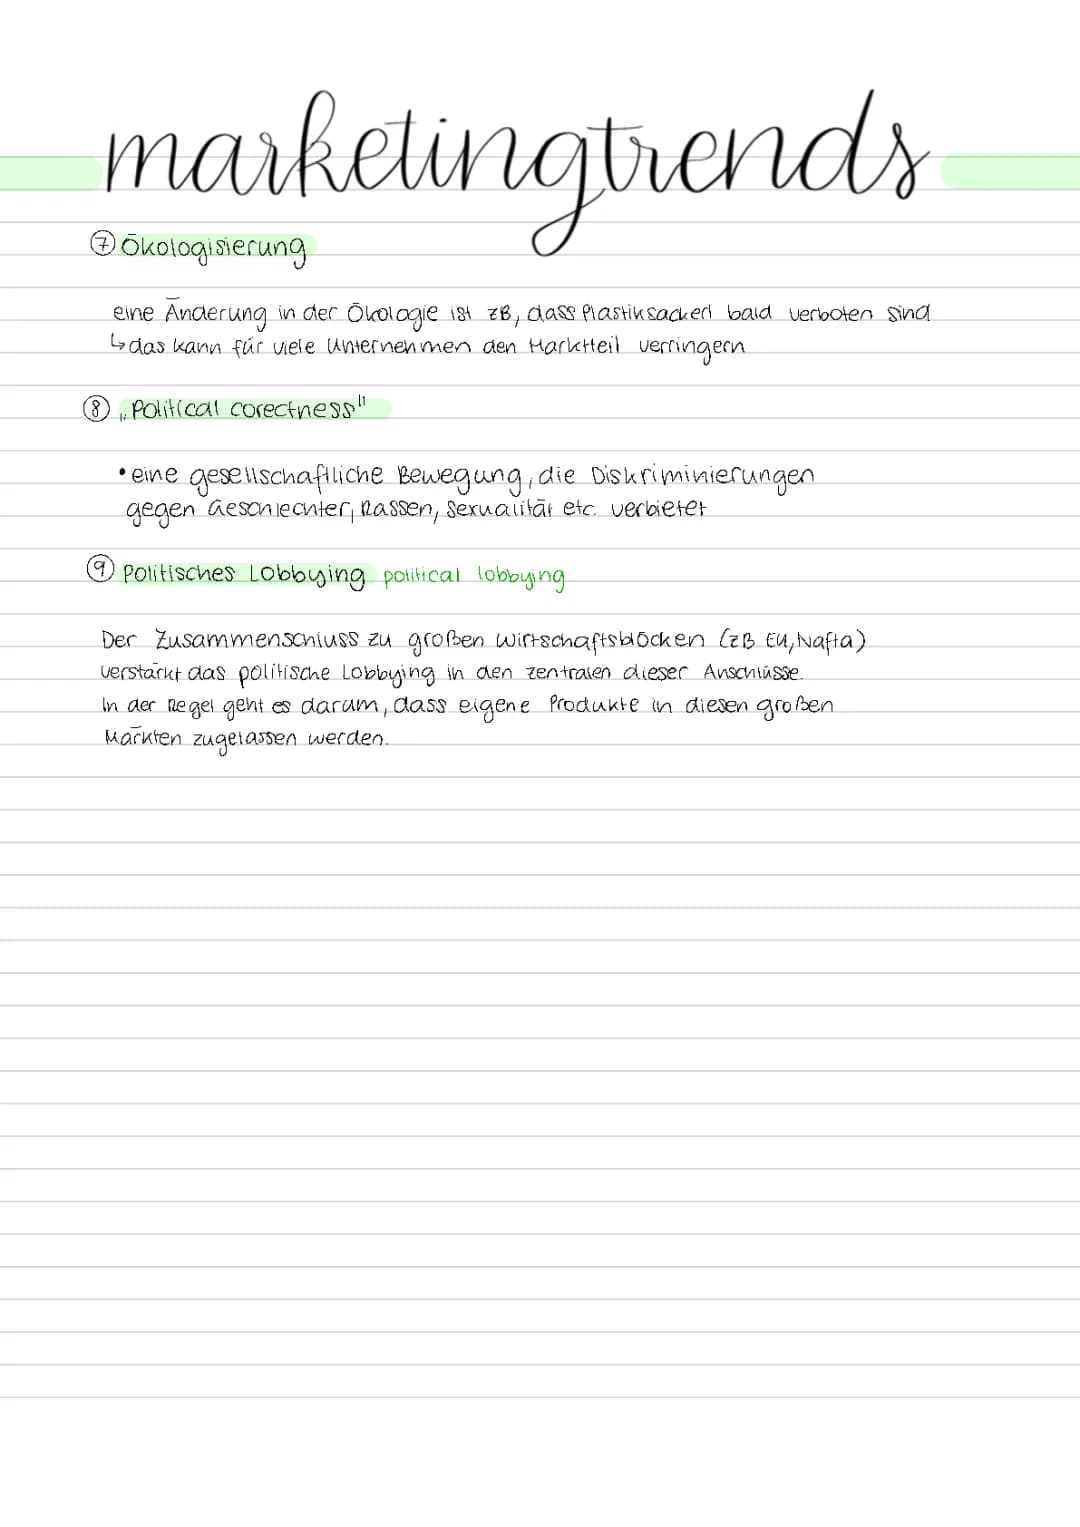 marketingtrends
⑦ Ökologisierung
eine Änderung in der Ökologie ist zB, dass Plastiksackerl bald verboten sind
↳ das kann für viele Unternehmen den Marktteil verringern
⑧ „Political corectness"
• eine gesellschaftliche Bewegung, die Diskriminierungen
gegen Geschlechter, Rassen, Sexualität etc. verbietet
⑨ Politisches Lobbying political lobbying
Der Zusammenschluss zu großen Wirtschaftsblöcken (zB EU, Nafta)
verstärkt das politische Lobbying in den Zentralen dieser Anschlüsse.
In der Regel geht es darum, dass eigene Produkte in diesen großen
Märkten zugelassen werden.